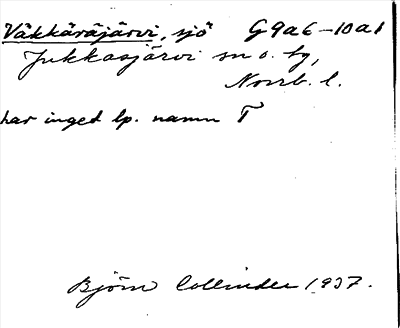 Väkkäräjärvi, sjö G9a6-10a1
Jukkasjärvi sn o. tg,
Norrb. l.
har inget lp. namn T
Björn Collinder 1937.